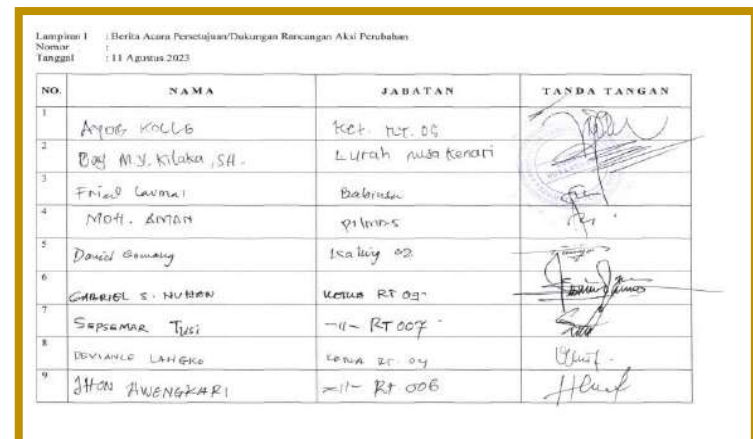 Lampiran I : Berita Acara Persetujuan/Dukungan Rancangan Aksi Perubahan
Nomor :
Tanggal : 11 Agustus 2023
NO. NAMA JABATAN TANDA TANGAN
1 AYOB KOLLE Ket. RT. 05
2 Boy M.Y. Kilaka, SH. Lurah nusa Kenari
3 Babinsa
4 MOH. AMAN
5 Daniel Gomang Kaling 02
6 GABRIEL S. KETUA RT 09
7 SEPSEMAR TUSI -11- RT 007
8 DEVIANCE LANGKO RT. 04
9 JHON AWENGKARI -11- Rt 006